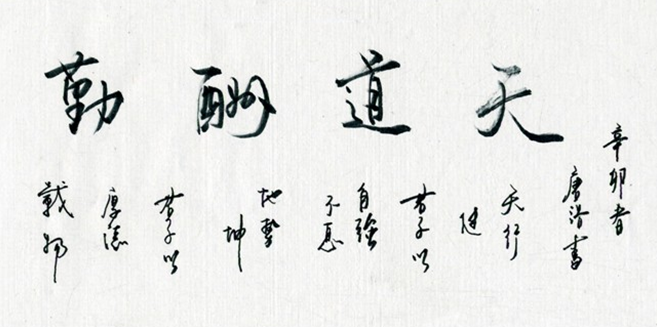 天道酬勤
辛卯春
唐書
天行
健
君子以
自強
不息
地勢
坤
君子以
厚德
載物